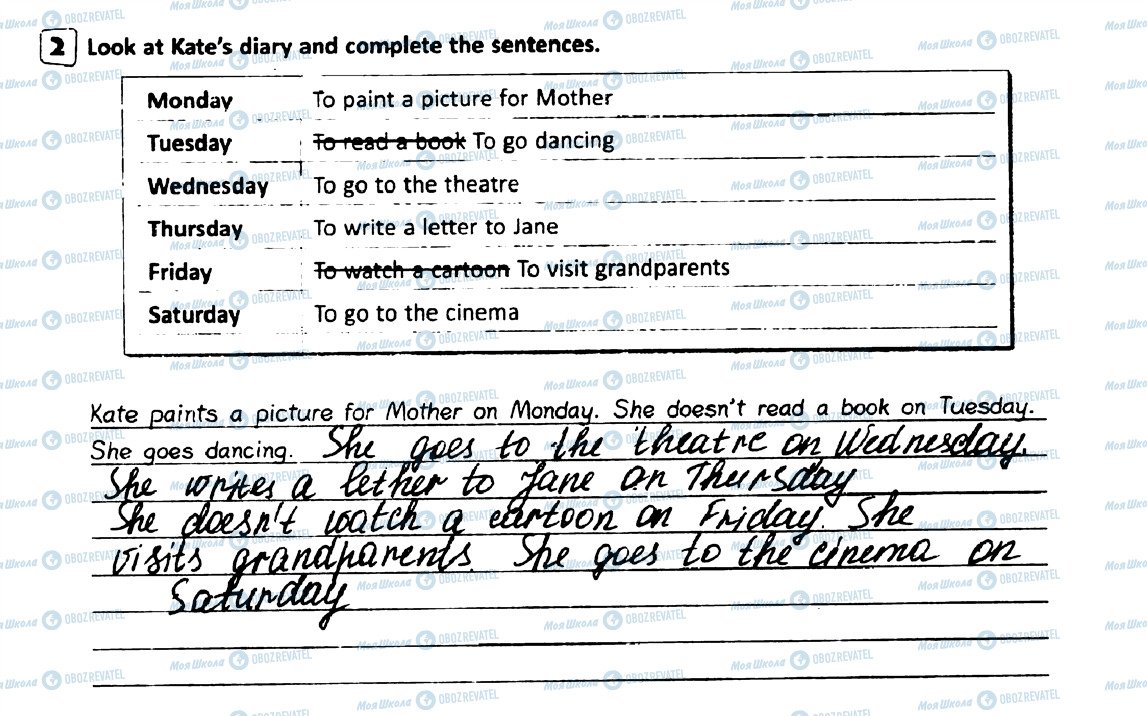 2 Look at Kate's diary and complete the sentences.
Monday To paint a picture for Mother
Tuesday To read a book To go dancing
Wednesday To go to the theatre
Thursday To write a letter to Jane
Friday To watch a cartoon To visit grandparents
Saturday To go to the cinema
Kate paints a picture for Mother on Monday. She doesn't read a book on Tuesday.
She goes dancing. She goes to the theatre on Wednesday.
She writes a lether to Jane on Thursday
She doesn't watch a cartoon on Friday. She
visits grandparents She goes to the cinema on
Saturday
МояШкола OBOZREVATEL